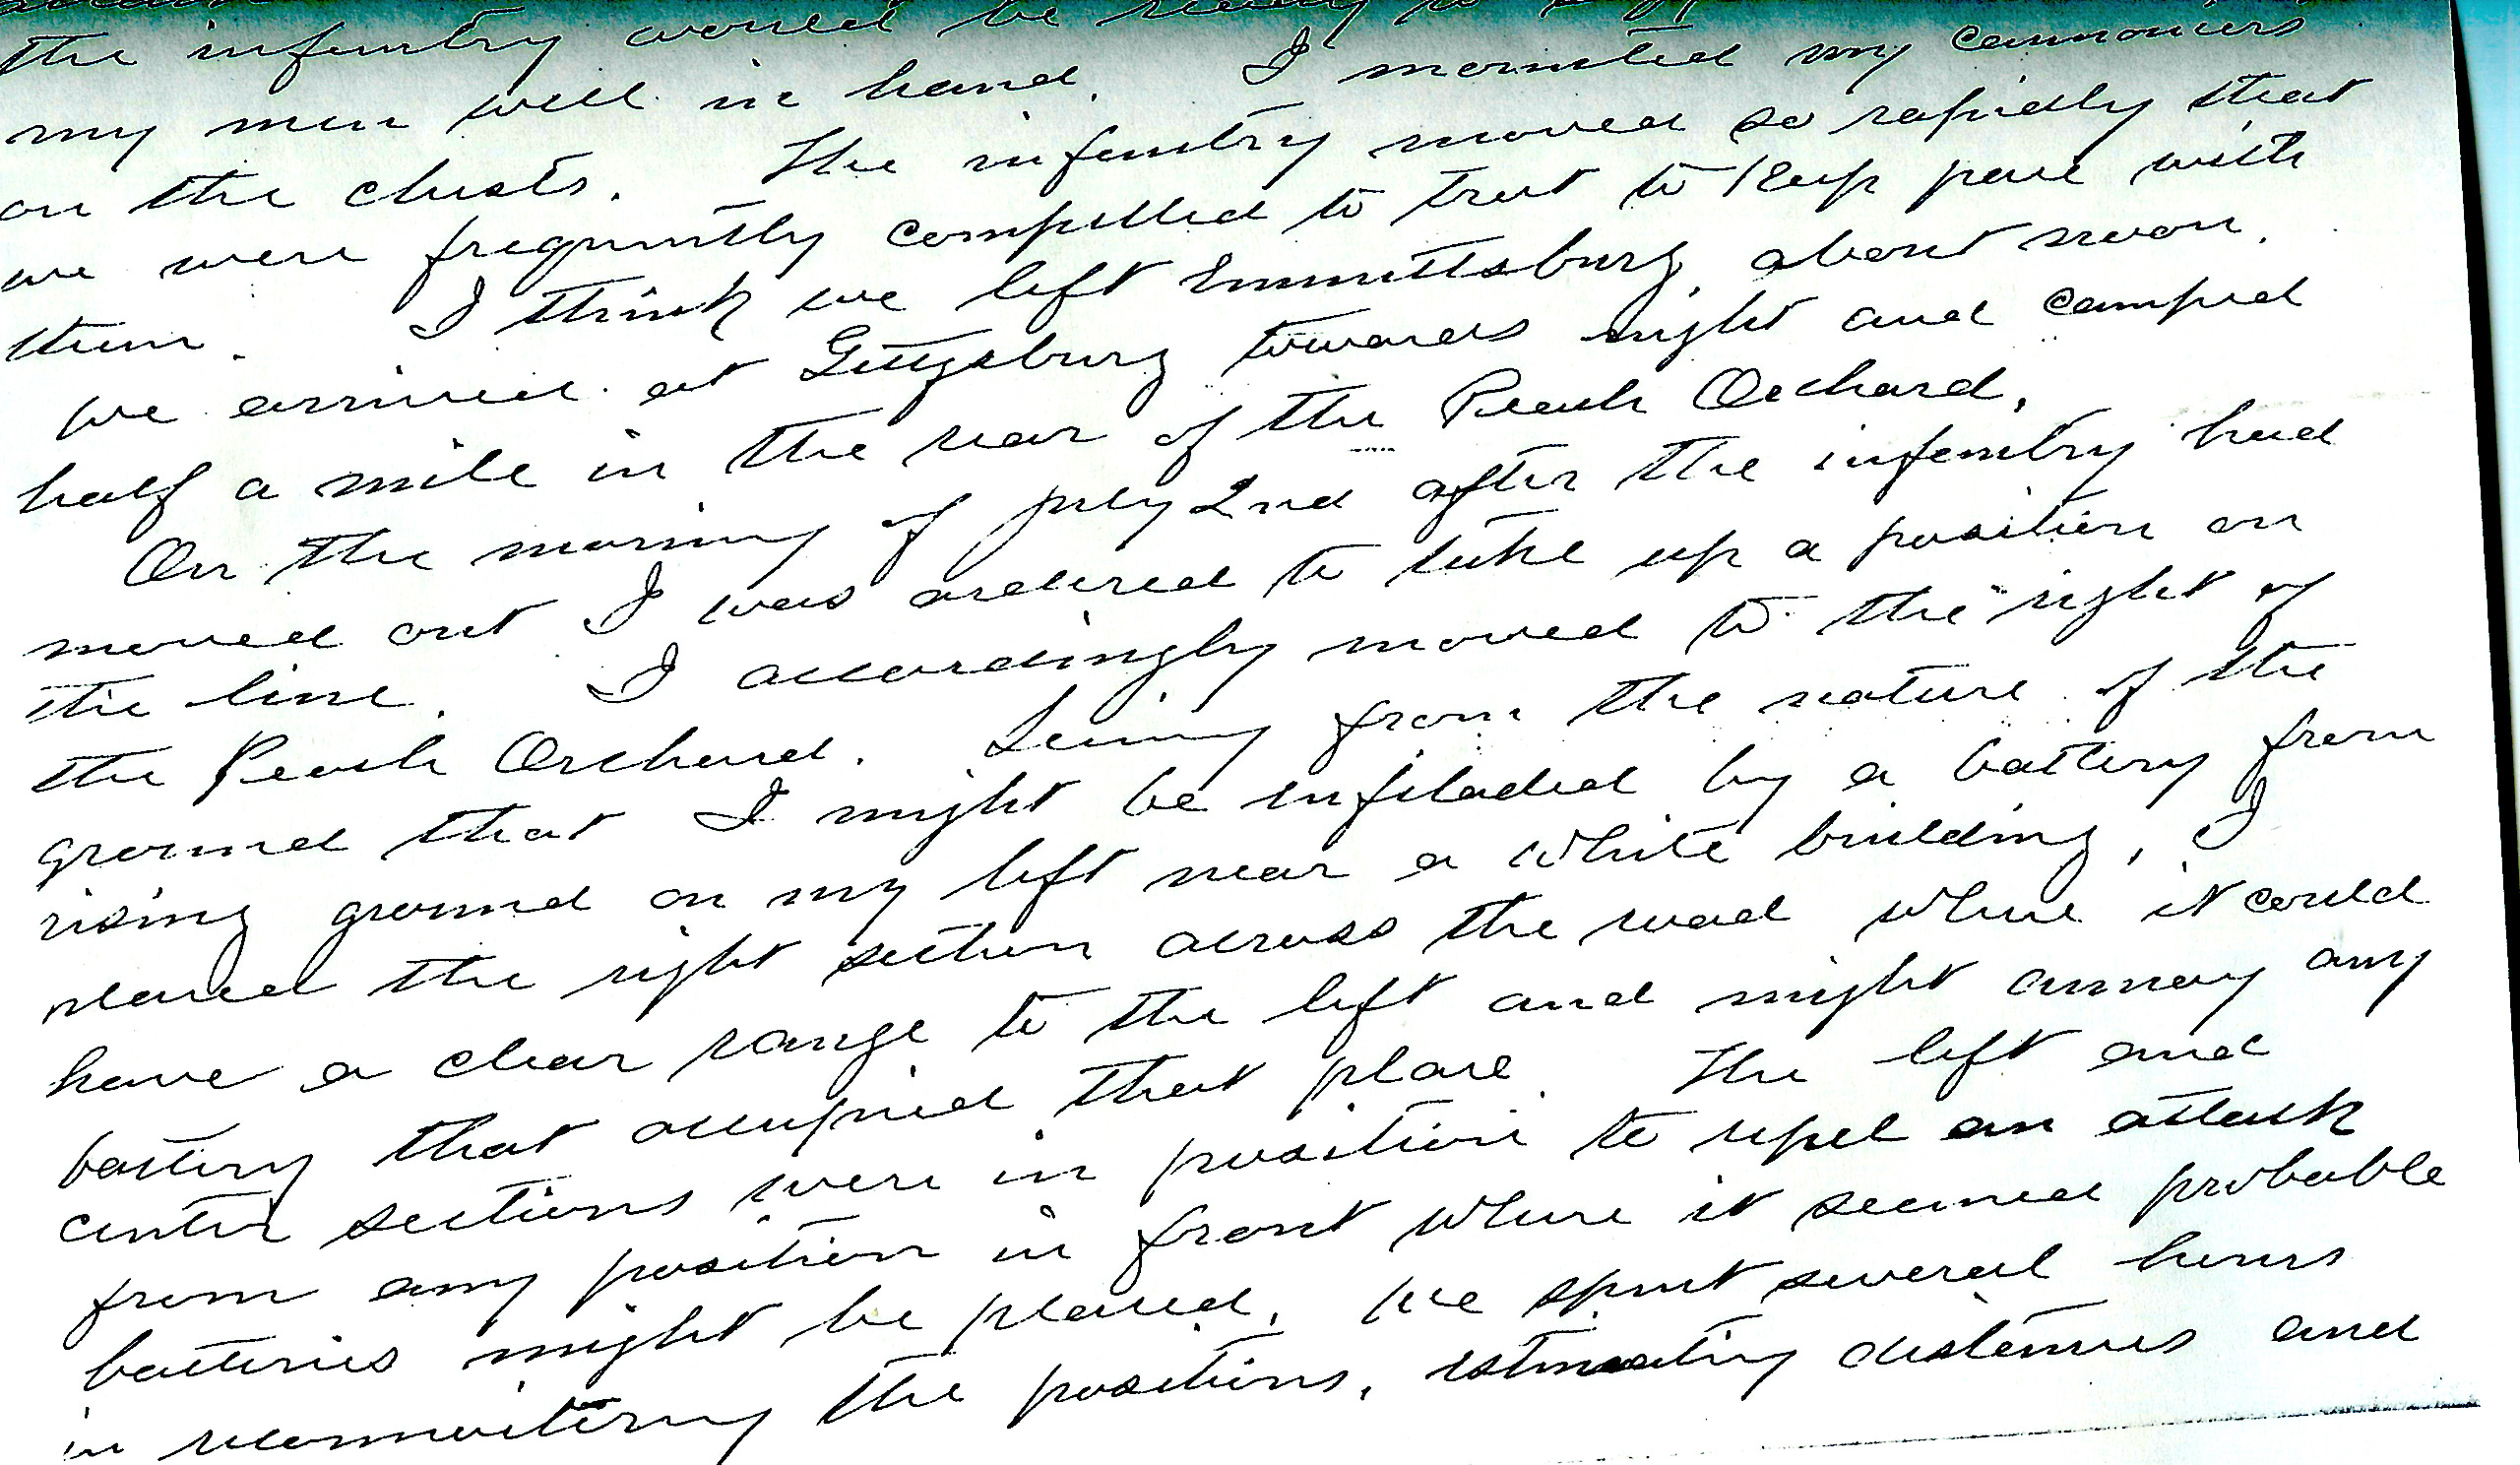 the infantry would be ready to
my men well in hand. I mounted my cannoniers
on the chests. The infantry moved so rapidly that
we were frequently compelled to trot to keep pace with
them. I think we left Emmittsburg about noon.
We arrived at Gettysburg towards night and camped
half a mile in the rear of the Peach Orchard.
On the morning of July 2nd after the infantry had
moved out I was ordered to take up a position on
the line. I accordingly moved to the right of
the Peach Orchard. Seeing from the nature of the
ground that I might be enfiladed by a battery from
rising ground on my left near a white building, I
placed the right section across the road where it could
have a clear range to the left and might annoy any
battery that occupied that place. The left and
center sections were in position to repel an attack
from any position in front where it seemed probable
batteries might be placed. We spent several hours
in reconnoitering the positions, estimating distances and